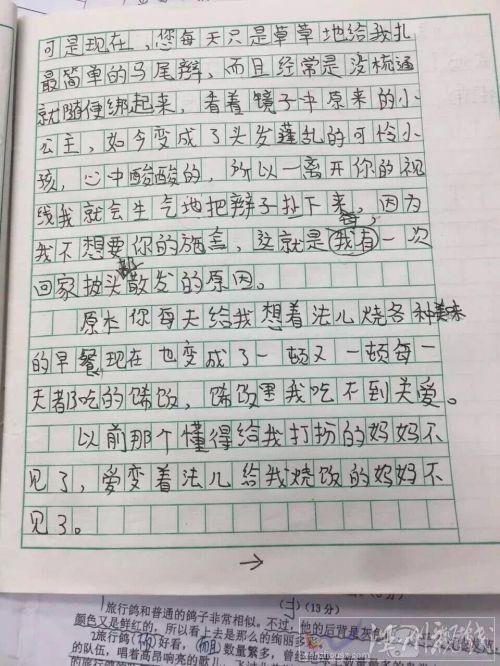 可是现在，您每天只是草草地给我扎
最简单的马尾辫，而且经常是没梳通
就随便绑起来，看着镜子中原来的小
公主，如今变成了头发蓬乱的可怜小
孩，心中酸酸的，所以一离开你的视
线我就会生气地把辫子扯下来，因为
我不想要你的施舍，这就是我每有一次
回家披头散发的原因。
原本你每天给我想着法儿烧各种美味
的早餐现在也变成了一顿又一顿每一
天都吃的馊饭，馊饭里我吃不到关爱。
以前那个懂得给我打扮的妈妈不
见了，爱变着法儿给我烧饭的妈妈不
见了。
→
(二)(13分)
1旅行鸽和普通的鸽子非常相似。不过，他的后背是灰
颜色又是鲜红的，所以看上去是那么的绚丽多
2旅行鸽 好看， 数量繁多，曾经
的队伍，唱着高昂响亮的歌儿，飞过北